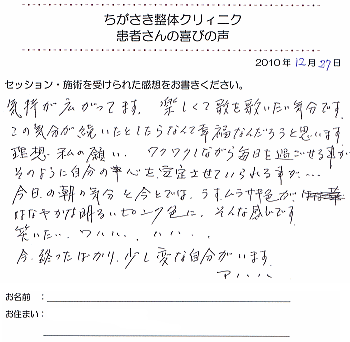 ちがさき整体クリィニク
患者さんの喜びの声
2010年12月27日
セッション・施術を受けられた感想をお書きください。
気持が広がってます。楽しくて歌を歌いたい気分です。
この気分が続いたとしたらなんて幸福なんだろうと思います。
理想、私の願い、ワクワクしながら毎日を過ごせる事が
そのように自分の 心を、安定させていられる事が…
今日の朝の気分と今とでは、うすムラサキ色が
はなやかな明るいピンク色に、そんな感じです。
笑いたい、ワハハ、ハハハ、、
今、終ったばかり、少し変な自分がいます。
アハハハ
お名前：
お住まい：